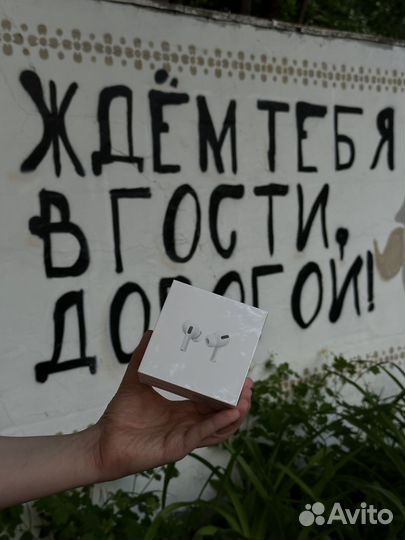 ЖДЁМ ТЕБЯ
В ГОСТИ,
ДОРОГОЙ!
Avito